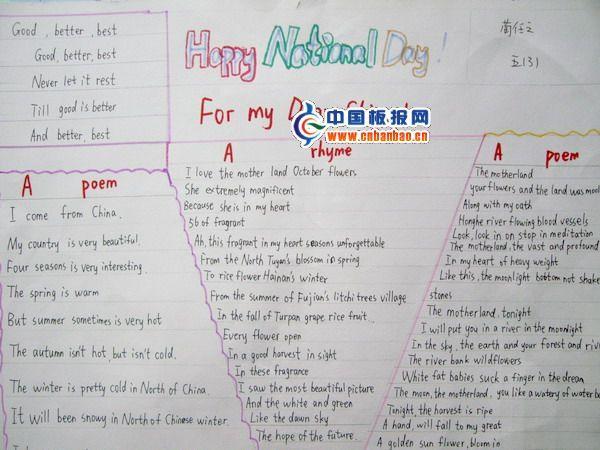 Good, better, best
Good, better, best
Never let it rest
Till good is better
And better, best
Happy National Day!
For my
五131
中国板报网
www.cnbanbao.cn
A poem
I come from China.
My country is very beautiful.
Four seasons is very interesting.
The spring is warm
But summer sometimes is very hot
The autumn isn't hot, but isn't cold.
The winter is pretty cold in North of China.
It will been snowy in North of Chinese winter.
A rhyme
I love the mother land October flowers
She extremely magnificent
Because she is in my heart
56 of fragrant
Ah, this fragrant in my heart seasons unforgettable
From the North Tugan's blossom in spring
To rice flower Hainan's winter
From the summer of Fujian's litchi trees village
In the fall of Turpan grape rice fruit..
Every flower open
In a good harvest in sight
In these fragrance
I saw the most beautiful picture
And the white and green
Like the dawn sky
The hope of the future.
A poem
The motherland
your flowers and the land was
Along with my oath
Honghe river flowing blood vessels
Look, look in on stop in meditation
The motherland, the vast and profound
In my heart of heavy weight
Like this, the moonlight bottom not shake
stones
The motherland, tonight
I will put you in a river in the moonlight
In the sky, the earth and your forest and
The river bank wildflowers
White fat babies suck a finger in the dream
The moon, the motherland, you like a watery of water
Tonight, the harvest is ripe
A hand, will fall to my great
A golden sun flower, bloom in